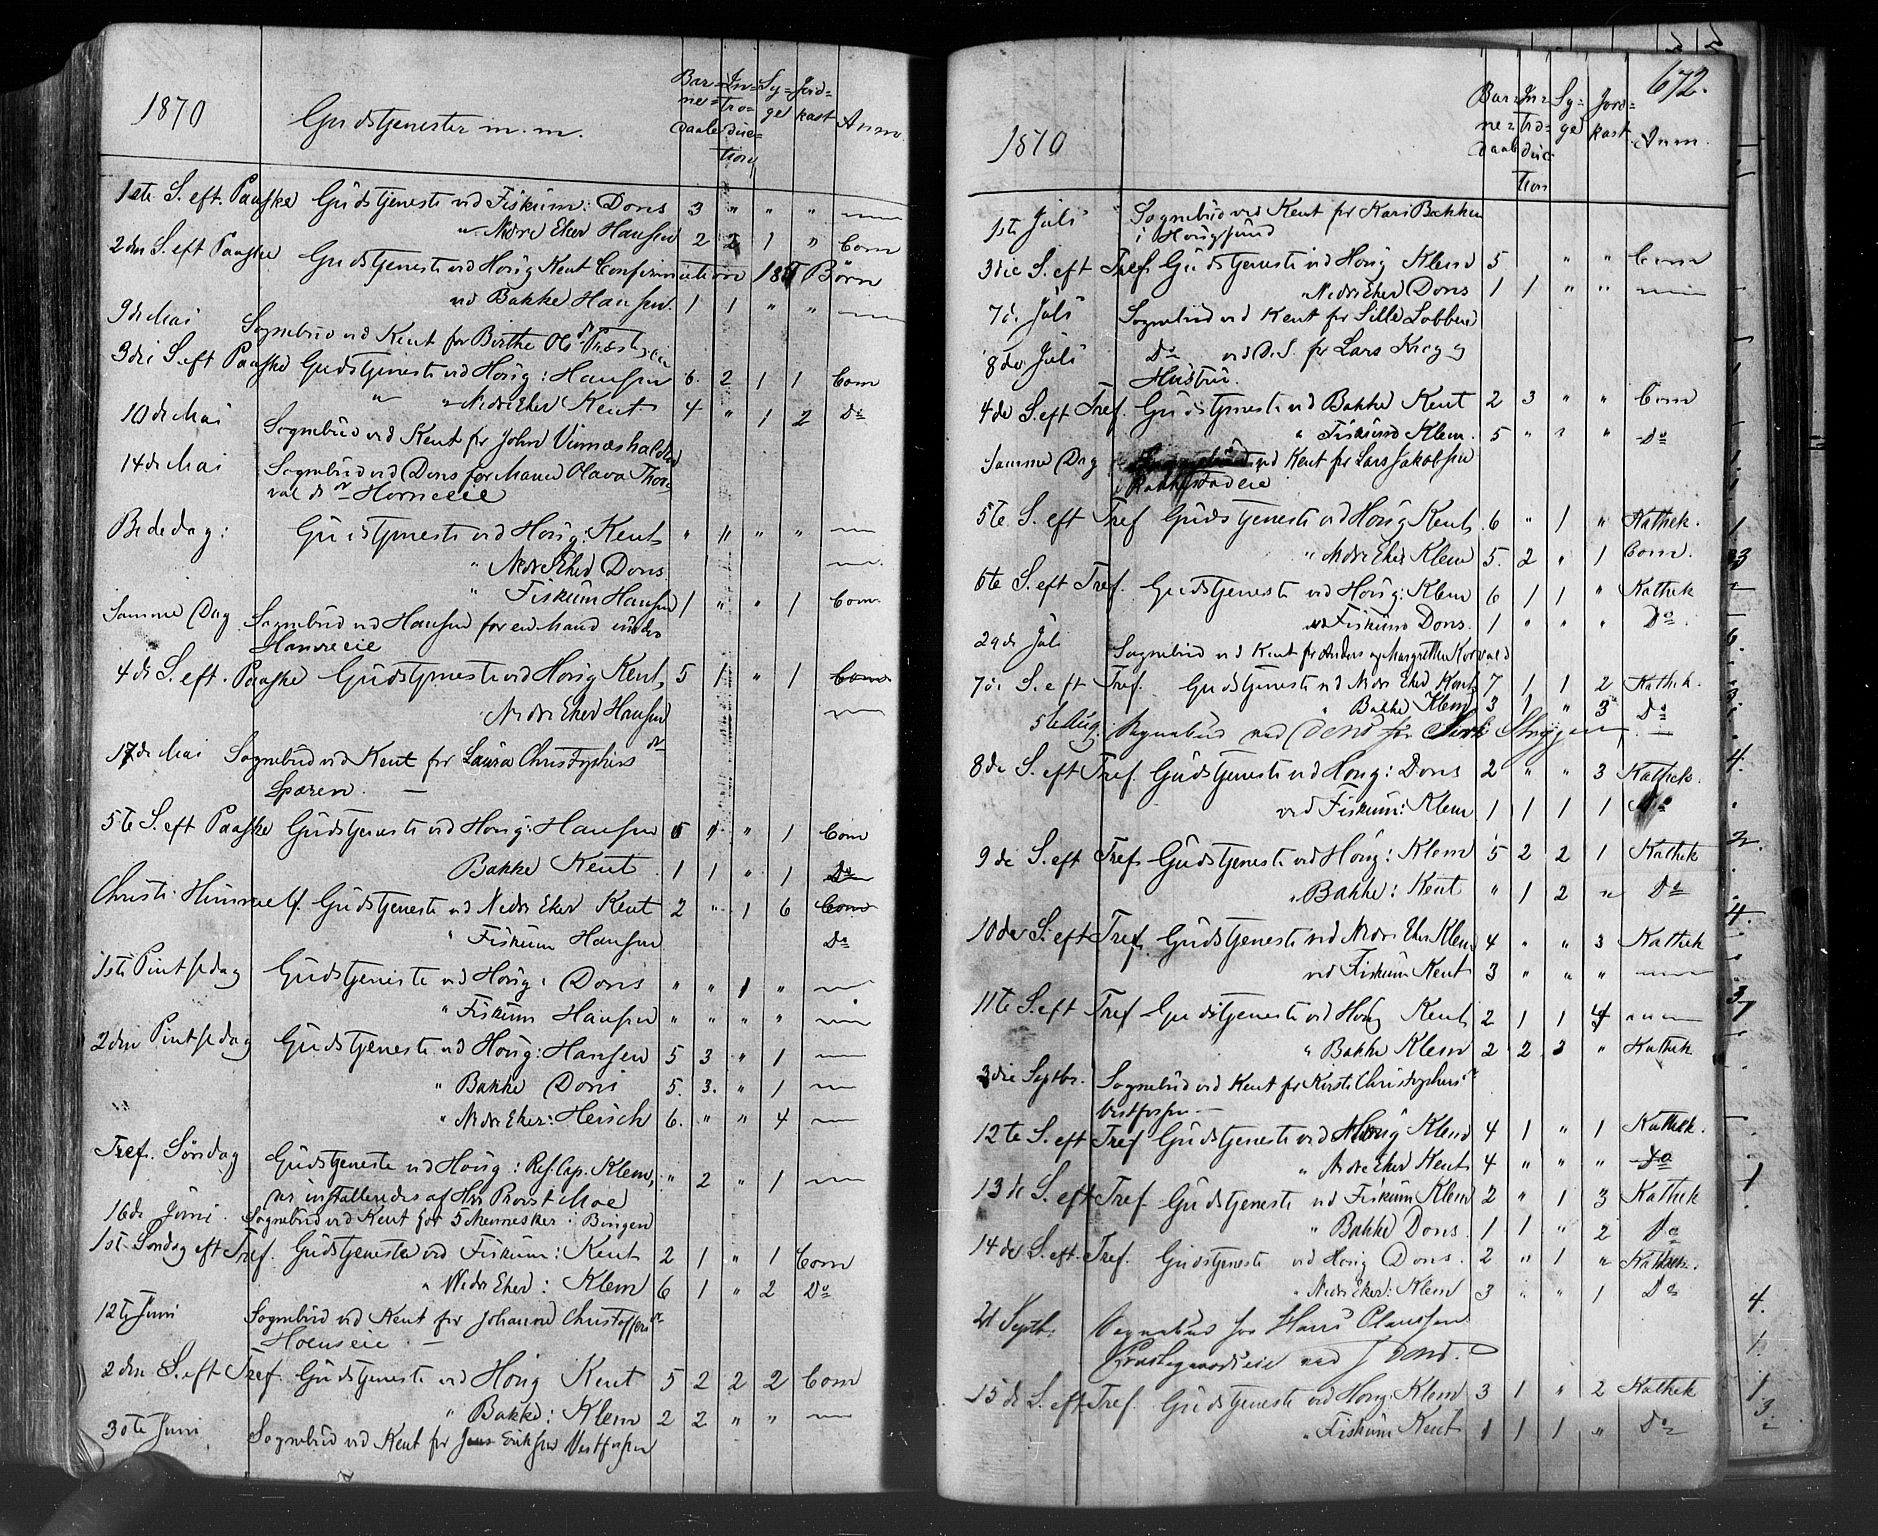 1870
Gudstjenester m. m.
Bar= In= Sy= Jord=
ne= tro= ge kast Anm
daab duc=
tion
1ste S. eft. Paaske Gudstjeneste ved Fiskum: Dons 3 " " "
" Nedre Eker Hansen 2 2 1 " Com
2den S. eft Paaske Gudstjeneste ved Houg Kent Confirmation Børn
ved Bakke Hansen 1 1 " "
9de Mai Sognebud ved Kent for Birthe
3die S. eft Paaske Gudstjeneste ved Houg: Hansen 6. 2 1 1 Com
" " Nedre Eker Kent 4 " 1 2 Do
10de Mai Sognebud ved Kent for John
14de Mai Sognebud ved Dons for Maren Olava Thor
val ds Horneeie
Bededag: Gudstjeneste ved Houg: Kent " " " "
" Nedre Eker Dons
" Fiskum Hansen 1 " " 1 Com.
Samme Dag Sognebud ved Hansen for en Mand under
4de S. eft. Paaske Gudstjeneste ved Houg Kent 5 1 " 1 Com
" Nedre Eker Hansen
17de Mai Sognebud ved Kent for Laura Christophers
Sparen. —
5te S. eft Paaske Gudstjeneste ved Houg: Hansen 5 1 " 1 Com
Bakke Kent 1 1 " 1 Do
Christi Himmelf. Gudstjeneste ved Nedre Eker Kent 2 " 1 6 Com
" Fiskum Hansen Do
1ste Pintsedag Gudstjeneste ved Houg: Dons " " 1 "
" Fiskum Hansen " " " "
2den Pintsedag Gudstjeneste ved Houg: Hansen 5 3 " 1
" Bakke Dons 5. 3. " 1
" Nedre Eker: Heisch 6. " " 4
Tref. Søndag Gudstjeneste ved Houg: Res. Cap. Klem, " 2 " 1
der installeredes af Hr Provst Moe
16de Juni. Sognebud ved Kent for 5 Mennesker i Bingen
1ste Søndag eft Tref. Gudstjeneste ved Fiskum: Kent 2 1 " 1 Com
" Nedre Eker: Klem 6 1 " 2 Do
12te Juni Sognebud ved Kent for Johanne Christoffers
Hoenseie —
2den S. eft Tref. Gudstjeneste ved Houg Kent 5 2 2 2 Com
" Bakke: Klem 2 2 " "
30te Juni Sognebud ved Kent for Jens Eriksen Vestfossen
672.
1870
Bar= In= Sy= Jord=
ne= tro= ge kast. Anm.
daab duc=
tion
1ste Juli Sognebud ved Kent for Kari Bakken
i Hougsund
3die S. eft Tref. Gudstjeneste ved Houg Klem 5 " " Com
" Nedre Eker Dons 1 1 " "
7de Juli Sognebud ved Kent for Sille Lobben
8de Juli Do ved D.S. for Lars Krag og
Hustru.
4de S. eft Tref. Gudstjeneste ved Bakke Kent 2 3 " " Com
" Fiskum Klem. 5 " " " Do
Samme Dag ved Kent for Lars Jakobsen
5te S. eft Tref Gudstjeneste ved Houg Kent 6 " 1 " Kathek.
" Nedre Eker Klem 5. 2 " 1 Com.
6te S. eft Tref. Gudstjeneste ved Houg: Klem 6 1 1 " Kathek
ved Fiskum Dons. 1 " " " Do.
29de Juli Sognebud ved Kent for Anders og Margrethe Korvald
7de S. eft Tref. Gudstjeneste ved Nedre Eker Kent 7 1 1 2 Kathek.
" Bakke Klem 3 1 " 3 Do
5te Aug. Sognebud ved Dons for
8de S. eft Tref. Gudstjeneste ved Houg: Dons 2 " " 3 Kathek.
ved Fiskum: Klem 1 1 1 1 Do
9de S. eft Tref. Gudstjeneste ved Houg: Klem 5 2 2 1 Kathek
" Bakke: Kent " 1 2 " Do
10de S. eft Tref. Gudstjeneste ved Nedre Eker Klem 4 " " 3 Kathek
ved Fiskum Kent 3 " " "
11te S. eft Tref Gudstjeneste ved Houg Kent 2 1 1 4
" Bakke Klem 2 2 3 " Kathek
3die Septbr. Sognebud ved Kent for Kirsti Christophers
Vestfossen —
12te S. eft Tref Gudstjeneste ved Houg Klem 4 1 " 1 Kathek.
" Nedre Eker Kent 4 " " " Do
13de S. eft Tref. Gudstjeneste ved Fiskum Klem 2 " 1 3 Kathek
" Bakke Dons. 1 1 " 2 Do
14de S. eft. Tref. Gudstjeneste ved Houg Dons. 2 " 1 " Kathek.
" Nedre Eker: Klem 3 " " 1 Do
21 Septb. Sognebud for Hans Claussen
ved Dons.
15de S. eft Tref. Gudstjeneste ved Houg: Klem 3 1 " 2 Kathek
" Fiskum Kent 1 1 1 " Do